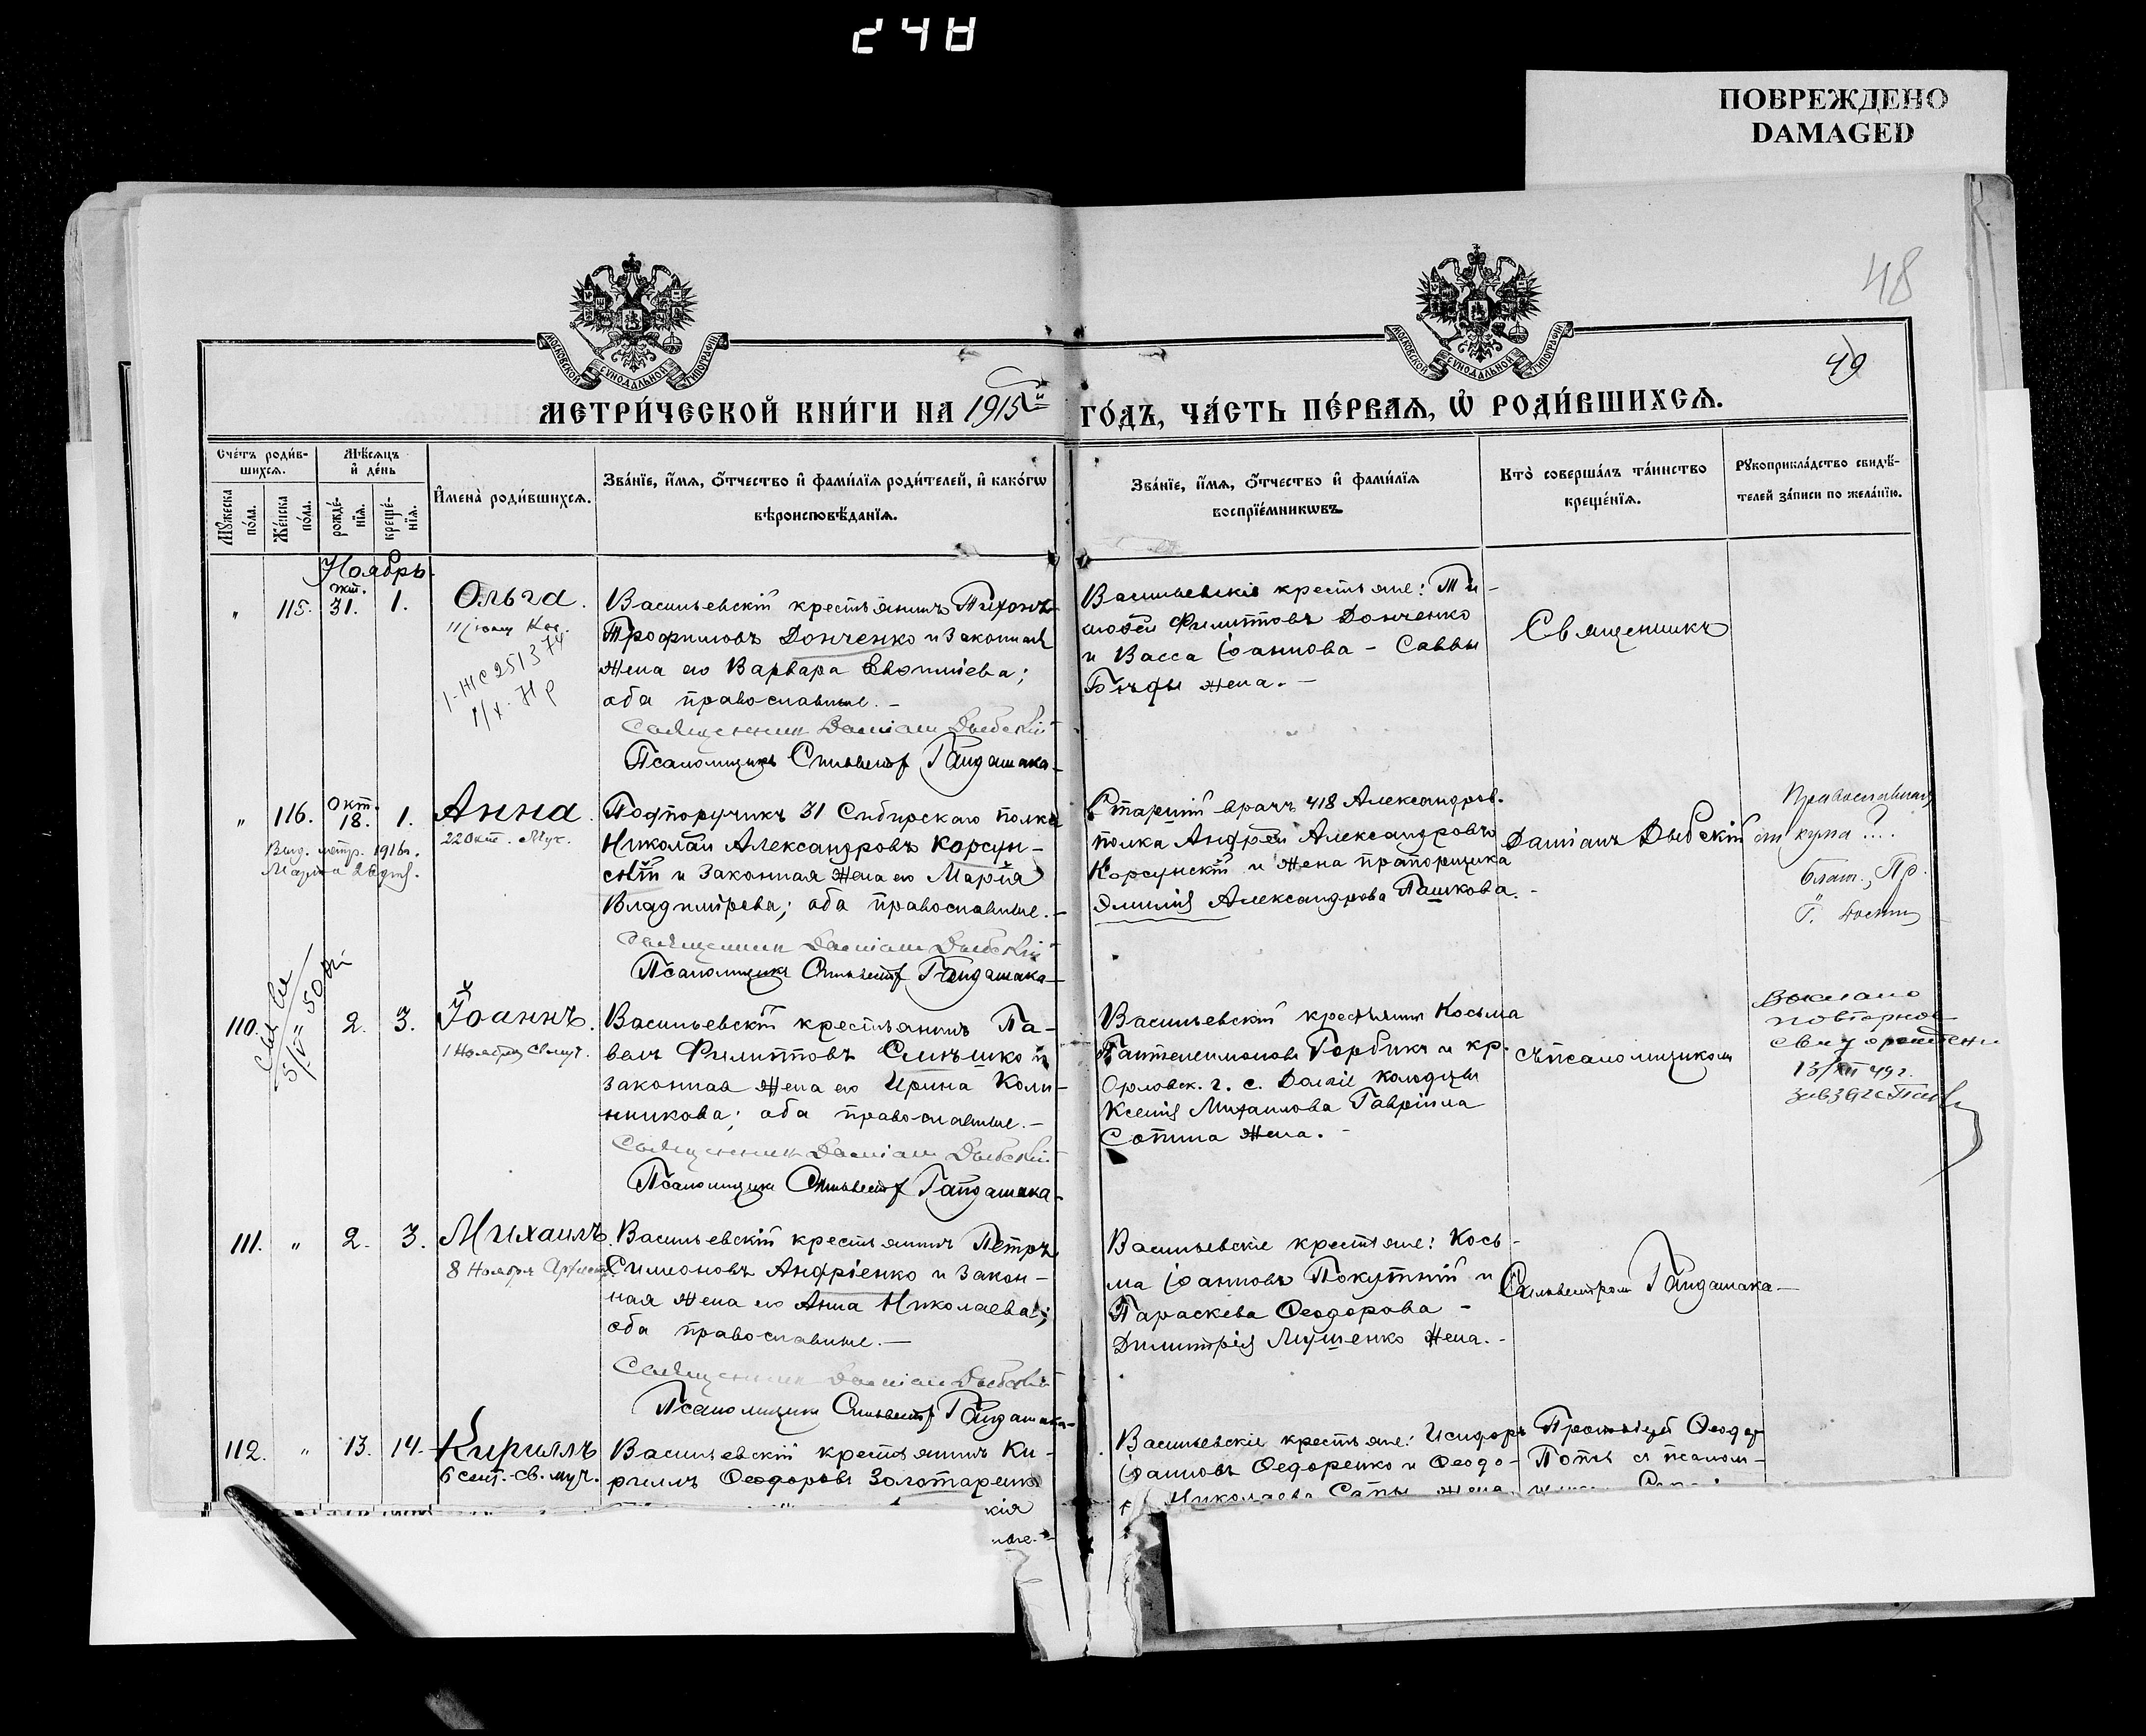 248
ПОВРЕЖДЕНО
DAMAGED
48
49
МОСКОВСКОЙ СѴНОДАЛЬНОЙ ТИПОГРАФІИ
МОСКОВСКОЙ СѴНОДАЛЬНОЙ ТИПОГРАФІИ
МЕТРИ́ЧЕСКОЙ КНИ́ГИ НА 1915й ГО́ДЪ, ЧА́СТЬ ПЕ́РВАѦ, Ѡ҆ РОДИ́ВШИХСѦ.
Сче́тъ роди́в-
шихсѧ.
Мѣ́сѧцъ
и҆ де́нь
Мꙋ́жеска
по́ла.
Же́нска
по́ла.
рожде́-
нїѧ.
креще́-
нїѧ.
И҆мена̀ роди́вшихсѧ.
Зва́нїе, и҆́мѧ, ѻ҆́тчество и҆ фами́лїѧ роди́телей, и҆ како́гѡ
вѣроисповѣ́данїѧ.
Зва́нїе, и҆́мѧ, ѻ҆́тчество и҆ фами́лїѧ
воспрїе́мникѡвъ.
Кто̀ соверша́лъ та́инство
креще́нїѧ.
Рꙋкоприкла́дство свидѣ́-
телей за́писи по жела́нїю.
Ноябрь.
" 115. Окт. 31. 1. Ольга.
Васильевскій крестьянинъ Тихонъ
Трофимовъ Донченко и законная
жена его Варвара Евѳиміева;
оба православные. –
Священник Даміан Дыбскій
Псаломщикъ Сильвестр Гайдашака
Васильевскіе крестьяне: Ти-
моѳей Филипповъ Донченко
и Васса Іоаннова – Саввы
жена. –
Священникъ
" 116. Окт. 18. 1. Анна.
22 Окт. Муч.
Выд. метр. 1916 г.
Марта 26 дня.
Подпоручикъ 31 Сибирскаго полка
Николай Александровъ Корсун-
скій и законная жена его Марія
Владимірова; оба православные. –
Священник Даміан Дыбскій
Псаломщикъ Сильвестр Гайдашака
Старшій врачъ 418 Александров.
полка Андрей Александровъ
Корсунскій и жена прапорщика
Эмилія Александрова Пашкова. –
Даміанъ Дыбскій
110. 2. 3. Іоаннъ.
1 Ноября
Васильевскій крестьянинъ Па-
велъ Филипповъ Слињшко и
законная жена его Ирина Кали-
никова; оба православные. –
Священник Даміан Дыбскій
Псаломщикъ Сильвестр Гайдашака
Васильевскій крестьянинъ Косьма
Пантелеимоновъ Горбикъ и кр.
Орловск. г. с. Колодцы
Ксенія Михаилова Гавріила
Сопина жена. –
съ псаломщикомъ
Выслано
повторное
свид о рожден
13/XII 49 г.
111. " 2. 3. Михаилъ.
8 Ноября
Васильевскій крестьянинъ Петръ
Симеоновъ Андріенко и закон-
ная жена его Анна Николаева;
оба православные. –
Священник Даміан Дыбскій
Псаломщикъ Сильвестр Гайдашака
Васильевскіе крестьяне: Кось-
ма Іоанновъ Покутній и
Параскева Ѳеодорова –
Димитрія Луценко жена. –
Сильвестромъ Гайдашака
112. " 13. 14. Кириллъ
6 сент. св. муч.
Васильевскій крестьянинъ Ки-
риллъ Ѳеодоровъ Золотаренко
кія
ные. –
Васильевскіе крестьяне: Исидоръ
Іоанновъ Ѳедоренко и Ѳеодо-
Николаева Сапы жена
Протоіерей Ѳеодор
Поповъ съ псалом-